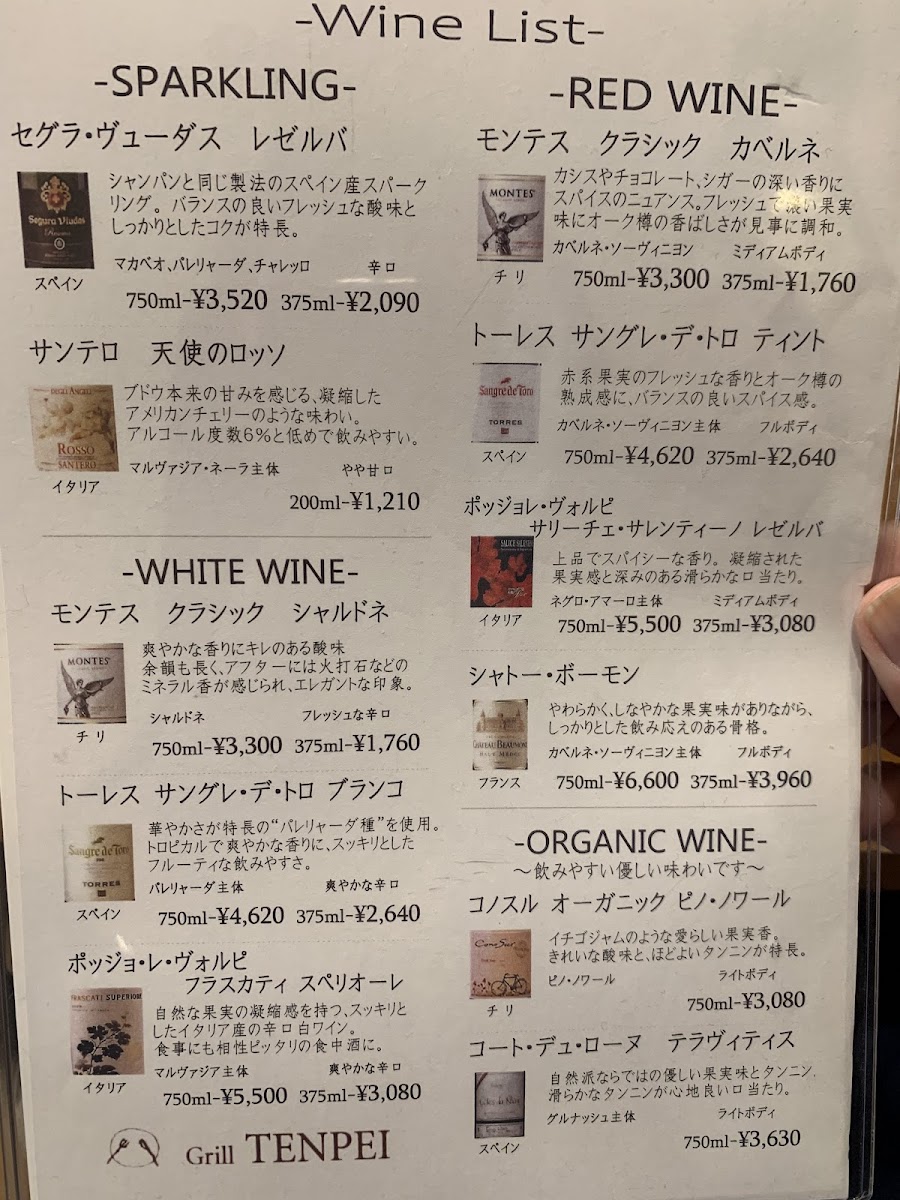 -Wine List-
-SPARKLING-
セグラ・ヴューダス レゼルバ
シャンパンと同じ製法のスペイン産スパーク
リング。バランスの良いフレッシュな酸味と
しっかりとしたコクが特長。
Segura Viudas
Reserva
スペイン
マカベオ、パレリャーダ、チャレッロ 辛口
750ml-¥3,520 375ml-¥2,090
サンテロ 天使のロッソ
DEGLI ANGELI
ROSSO
SANTERO
イタリア
ブドウ本来の甘みを感じる、凝縮した
アメリカンチェリーのような味わい。
アルコール度数6%と低めで飲みやすい。
マルヴァジア・ネーラ主体 やや甘口
200ml-¥1,210
-WHITE WINE-
モンテス クラシック シャルドネ
MONTES
チリ
爽やかな香りにキレのある酸味
余韻も長く、アフターには火打石などの
ミネラル香が感じられ、エレガントな印象。
シャルドネ フレッシュな辛口
750ml-¥3,300 375ml-¥1,760
トーレス サングレ・デ・トロ ブランコ
Sangre de Toro
TORRES
スペイン
華やかさが特長の“パレリャーダ種”を使用。
トロピカルで爽やかな香りに、スッキリとした
フルーティな飲みやすさ。
パレリャーダ主体 爽やかな辛口
750ml-¥4,620 375ml-¥2,640
ポッジョ・レ・ヴォルピ
フラスカティ スペリオーレ
FRASCATI SUPERIORE
イタリア
自然な果実の凝縮感を持つ、スッキリと
したイタリア産の辛口白ワイン。
食事にも相性ピッタリの食中酒に。
マルヴァジア主体 爽やかな辛口
750ml-¥5,500 375ml-¥3,080
Grill TENPEI
-RED WINE-
モンテス クラシック カベルネ
MONTES
チリ
カシスやチョコレート、シガーの深い香りに
スパイスのニュアンス。フレッシュで濃い果実
味にオーク樽の香ばしさが見事に調和。
カベルネ・ソーヴィニヨン ミディアムボディ
750ml-¥3,300 375ml-¥1,760
トーレス サングレ・デ・トロ ティント
Sangre de Toro
TORRES
スペイン
赤系果実のフレッシュな香りとオーク樽の
熟成感に、バランスの良いスパイス感。
カベルネ・ソーヴィニヨン主体 フルボディ
750ml-¥4,620 375ml-¥2,640
ポッジョレ・ヴォルピ
サリーチェ・サレンティーノ レゼルバ
イタリア
上品でスパイシーな香り。凝縮された
果実感と深みのある滑らかな口当たり。
ネグロ・アマーロ主体 ミディアムボディ
750ml-¥5,500 375ml-¥3,080
シャトー・ボーモン
CHATEAU BEAUMONT
フランス
やわらかく、しなやかな果実味がありながら、
しっかりとした飲み応えのある骨格。
カベルネ・ソーヴィニヨン主体 フルボディ
750ml-¥6,600 375ml-¥3,960
-ORGANIC WINE-
～飲みやすい優しい味わいです～
コノスル オーガニック ピノ・ノワール
Cono Sur
チリ
イチゴジャムのような愛らしい果実香。
きれいな酸味と、ほどよいタンニンが特長。
ピノ・ノワール ライトボディ
750ml-¥3,080
コート・デュ・ローヌ テラヴィティス
スペイン
自然派ならではの優しい果実味とタンニン、
滑らかなタンニンが心地良い口当たり。
グルナッシュ主体 ライトボディ
750ml-¥3,630